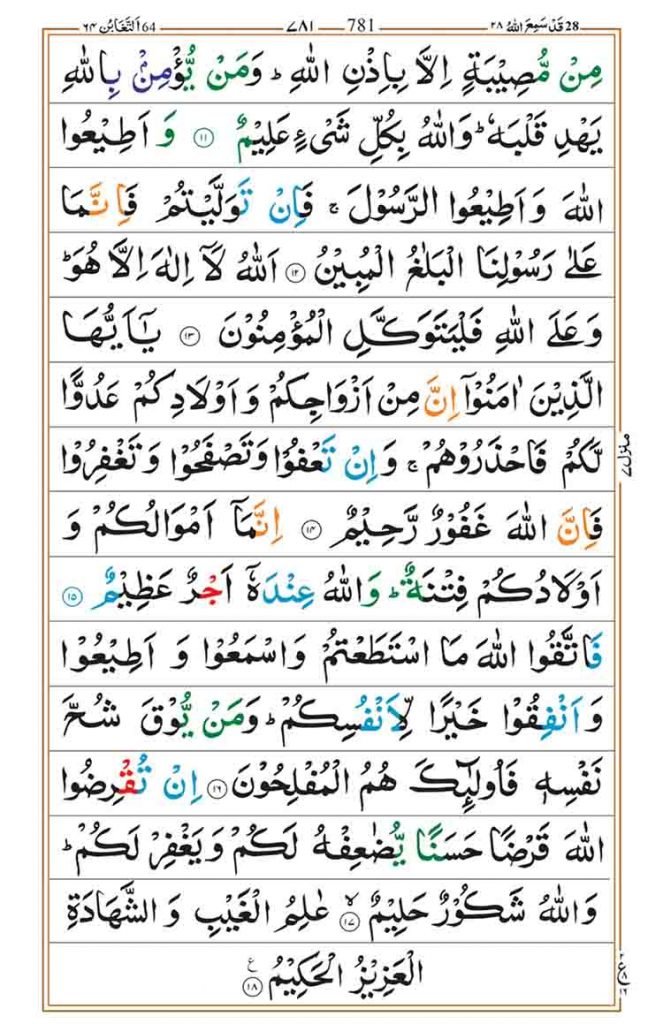 28 قَدْ سَمِعَ اللهُ ٢٨ — 781 — ٧٨١ — 64 اَلتَّغَابُن ٦٤
مِنْ مُّصِيْبَةٍ اِلَّا بِاِذْنِ اللهِ ؕ وَمَنْ يُّؤْمِنْۢ بِاللهِ
يَهْدِ قَلْبَهٗ ؕ وَاللهُ بِكُلِّ شَىْءٍ عَلِيْمٌ ١١ وَ اَطِيْعُوا
اللهَ وَ اَطِيْعُوا الرَّسُوْلَ ۚ فَاِنْ تَوَلَّيْتُمْ فَاِنَّمَا
عَلٰى رَسُوْلِنَا الْبَلٰغُ الْمُبِيْنُ ١٢ اَللهُ لَاۤ اِلٰهَ اِلَّا هُوَ ؕ
وَ عَلَى اللهِ فَلْيَتَوَكَّلِ الْمُؤْمِنُوْنَ ١٣ يٰۤاَيُّهَا
الَّذِيْنَ اٰمَنُوْۤا اِنَّ مِنْ اَزْوَاجِكُمْ وَ اَوْلَادِكُمْ عَدُوًّا
لَّكُمْ فَاحْذَرُوْهُمْ ۚ وَ اِنْ تَعْفُوْا وَ تَصْفَحُوْا وَ تَغْفِرُوْا
فَاِنَّ اللهَ غَفُوْرٌ رَّحِيْمٌ ١٤ اِنَّمَاۤ اَمْوَالُكُمْ وَ
اَوْلَادُكُمْ فِتْنَةٌ ؕ وَاللهُ عِنْدَهٗۤ اَجْرٌ عَظِيْمٌ ١٥
فَاتَّقُوا اللهَ مَا اسْتَطَعْتُمْ وَاسْمَعُوْا وَ اَطِيْعُوْا
وَ اَنْفِقُوْا خَيْرًا لِّاَنْفُسِكُمْ ؕ وَمَنْ يُّوْقَ شُحَّ
نَفْسِهٖ فَاُولٰٓئِكَ هُمُ الْمُفْلِحُوْنَ ١٦ اِنْ تُقْرِضُوا
اللهَ قَرْضًا حَسَنًا يُّضٰعِفْهُ لَكُمْ وَ يَغْفِرْ لَكُمْ ؕ
وَاللهُ شَكُوْرٌ حَلِيْمٌ ۙ ١٧ عٰلِمُ الْغَيْبِ وَ الشَّهَادَةِ
الْعَزِيْزُ الْحَكِيْمُ ١٨ ع
منزل ٧